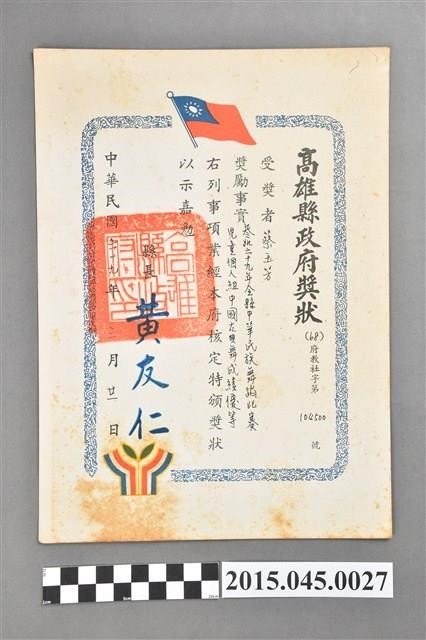 高雄縣政府獎狀
(68)府教社字第104500號
受獎者 蔡玉芳
獎勵事實 參加六十九年全縣中華民族舞蹈比賽
兒童個人組中國古典舞成績優等
右列事項業經本府核定特頒獎狀
以示嘉勉
縣長 黃友仁
中華民國六十九年 月廿一日
2015.045.0027